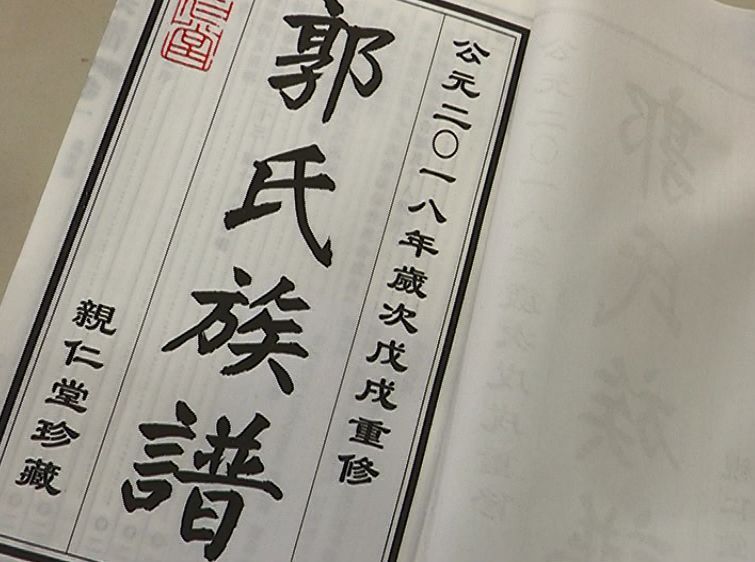 公元二〇一八年歲次戊戌重修
郭氏族譜
仁堂
親仁堂珍藏